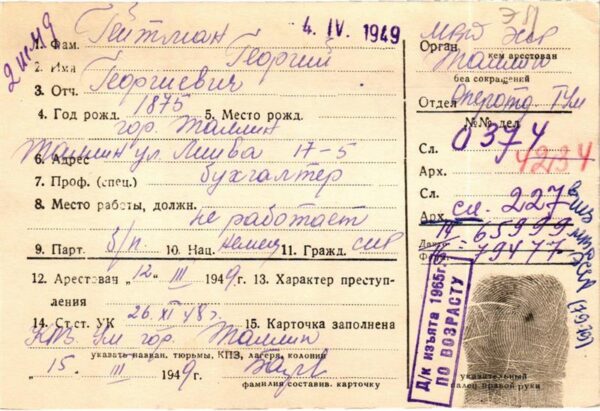 4. IV. 1949
2 кс м9
1. Фам. Гейтман
2. Имя Георгий
3. Отч. Георгиевич
4. Год рожд. 1875 5. Место рожд.
гор. Таллин
6. Адрес Таллин ул. 17-5
7. Проф. (спец.) бухгалтер
8. Место работы, должн.
не работает
9. Парт. б/п 10. Нац. немец 11. Гражд.
12. Арестован „12" III 1949 г. 13. Характер преступ-
ления
14. Ст.ст. УК 26. XI 48 г. 15. Карточка заполнена
гор. Таллин
указать назван. тюрьмы, КПЗ, лагеря, колонии
„15" III 1949 г.
фамилия составив. карточку
МВД ЭССР
Орган Таллин
кем арестован
без сокращений
Отдел
№№ дел
Сл. 0374
Арх. 4234
Сл.
Арх. сл. 227
65999
79477
Д/к изъята 1965г.
ПО ВОЗРАСТУ
указательный
палец правой руки